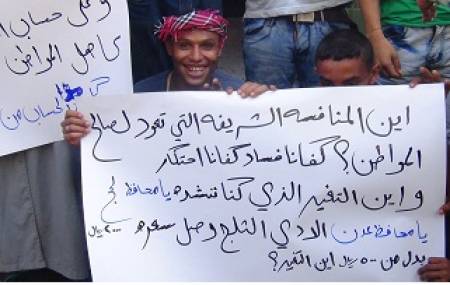 وعلى حساب
كاهل المواطن
اين المنافسه الشريفه التي تعود لصالح
المواطن؟ كفانا فساد كفانا احتكار
واين التغير الذي كنا ننشده يا محافظ لحج
يا محافظ عدن الادي الثلج وصل سعره ٢٠٠٠ ريال
بدل من ٥٠٠ ريال اين التغير؟